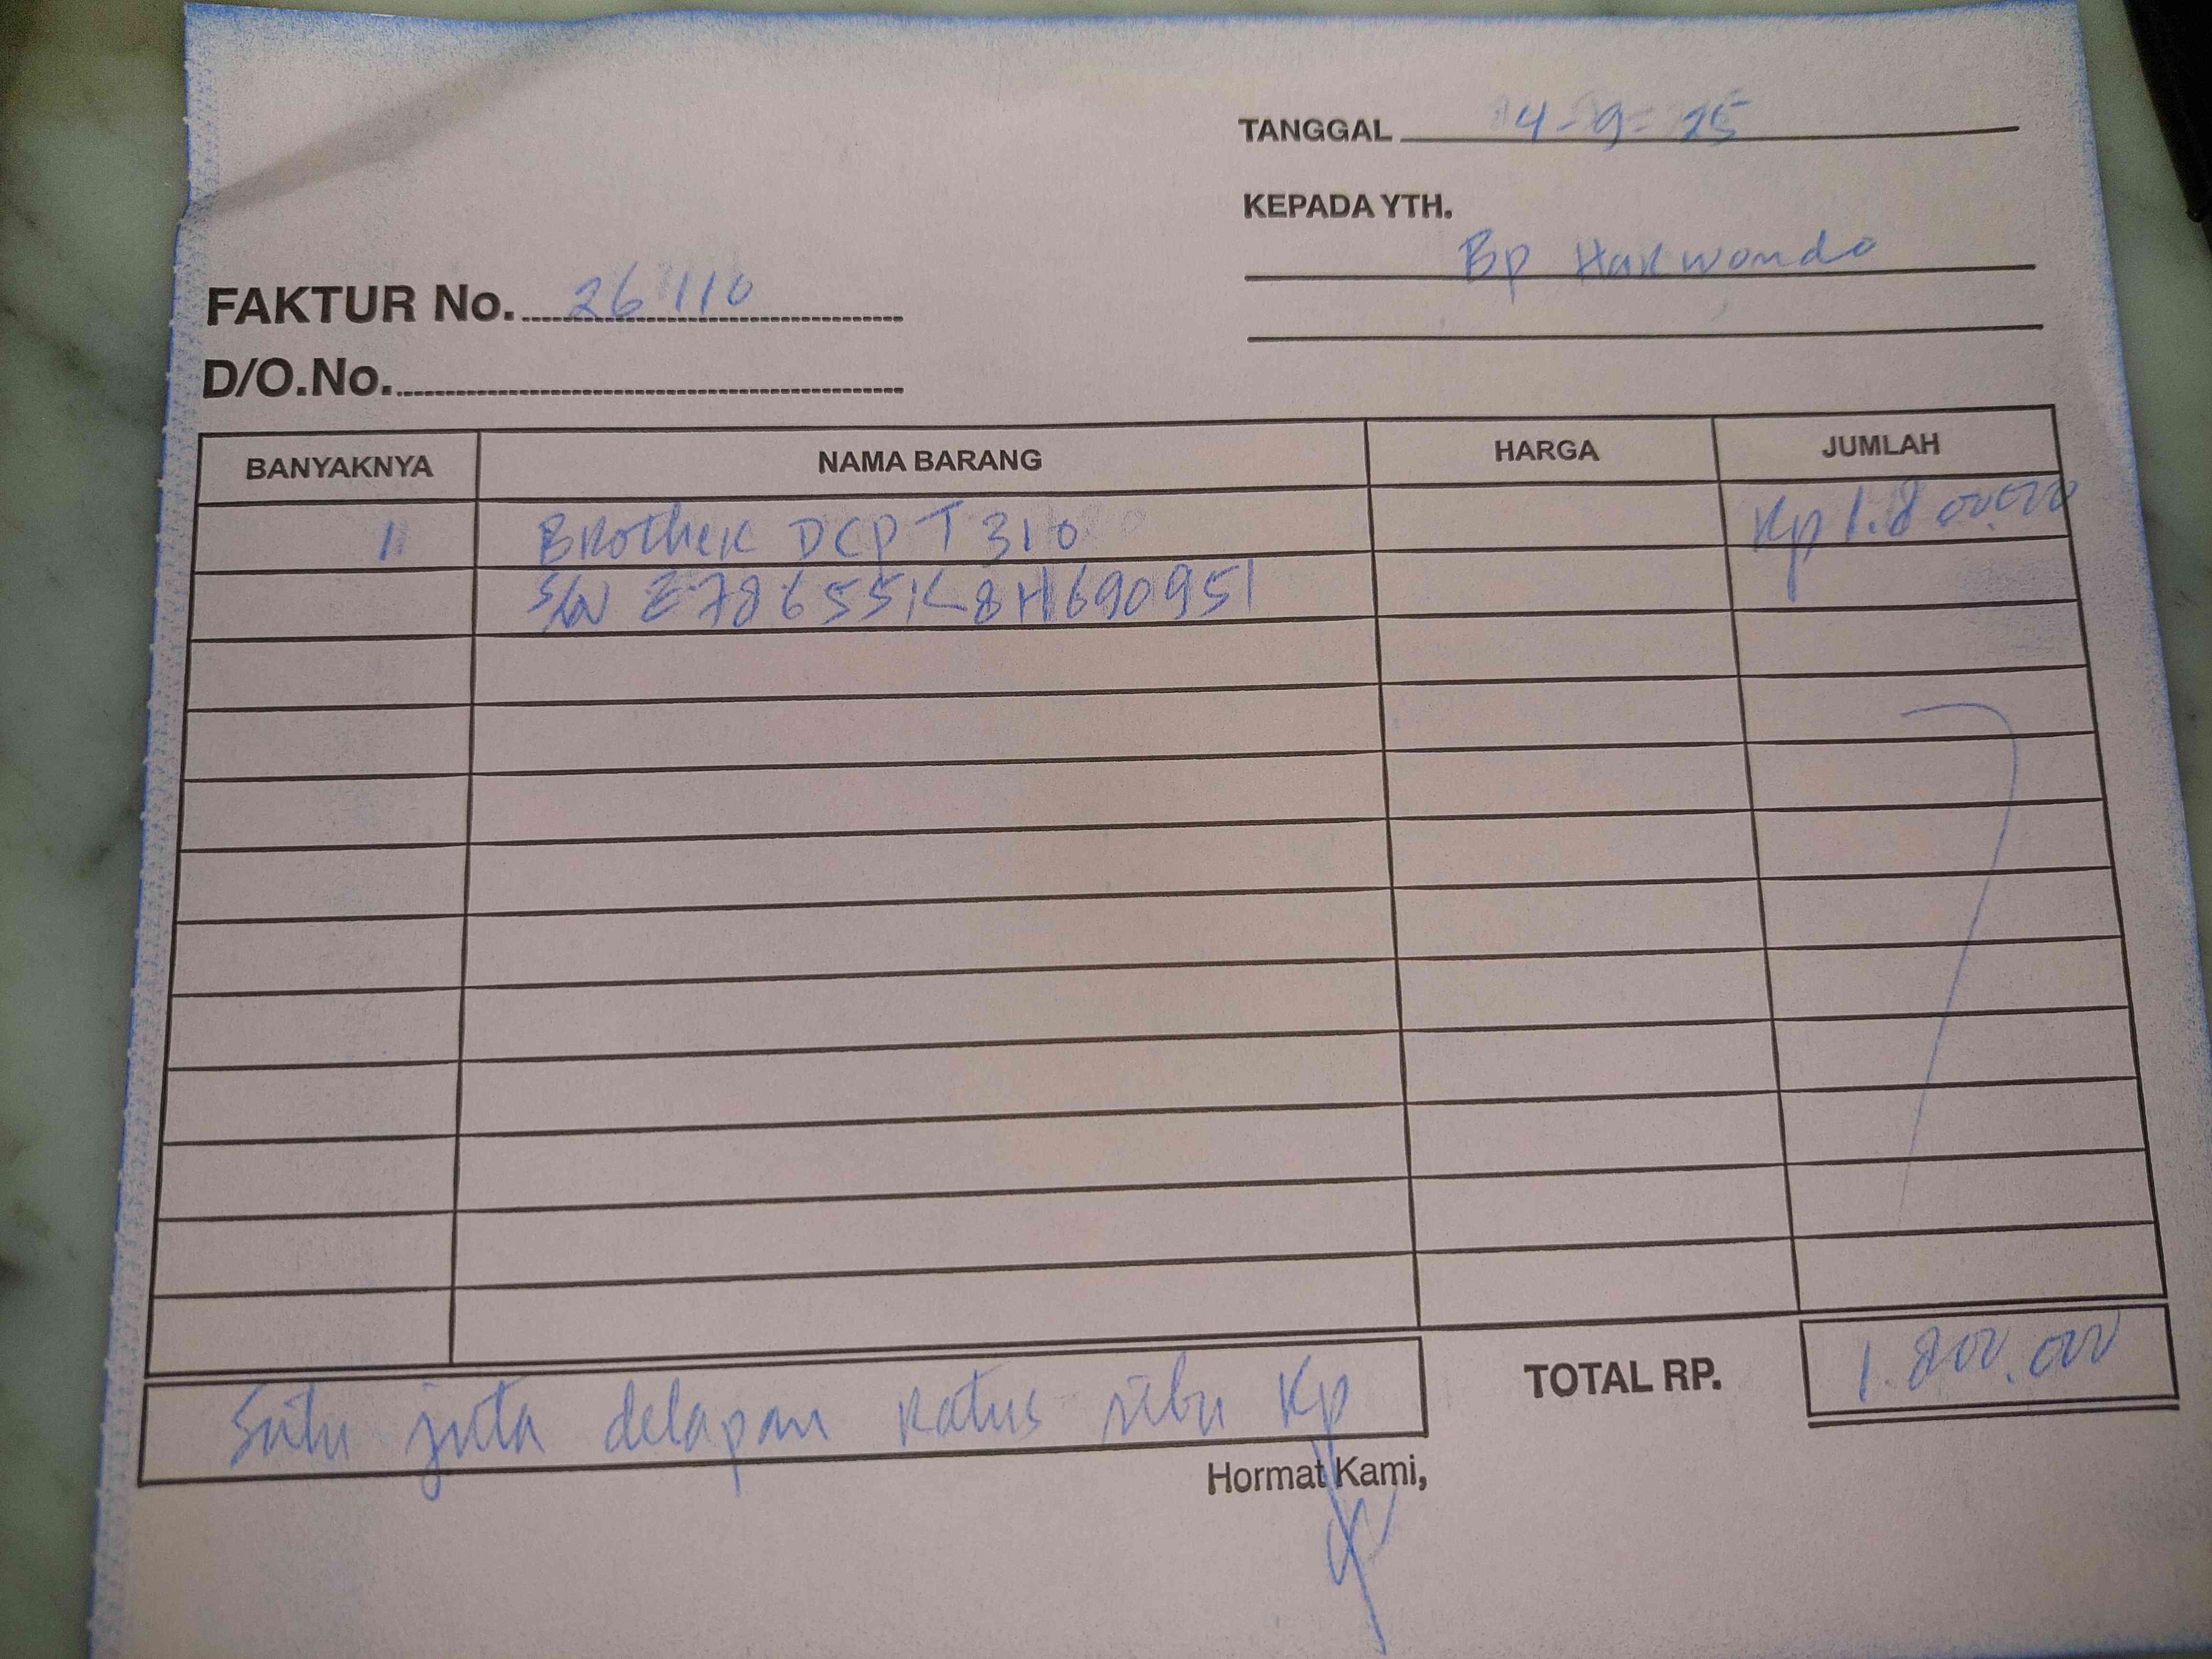 TANGGAL 4-9-25
KEPADA YTH.
Bp Harwondo
FAKTUR No. 26110
D/O.No.
BANYAKNYA NAMA BARANG HARGA JUMLAH
1 Brother DCP T310 Rp 1.800.000
S/N E78655K8H690951
Satu juta delapan ratus ribu Rp TOTAL RP. 1.800.000
Hormat Kami,